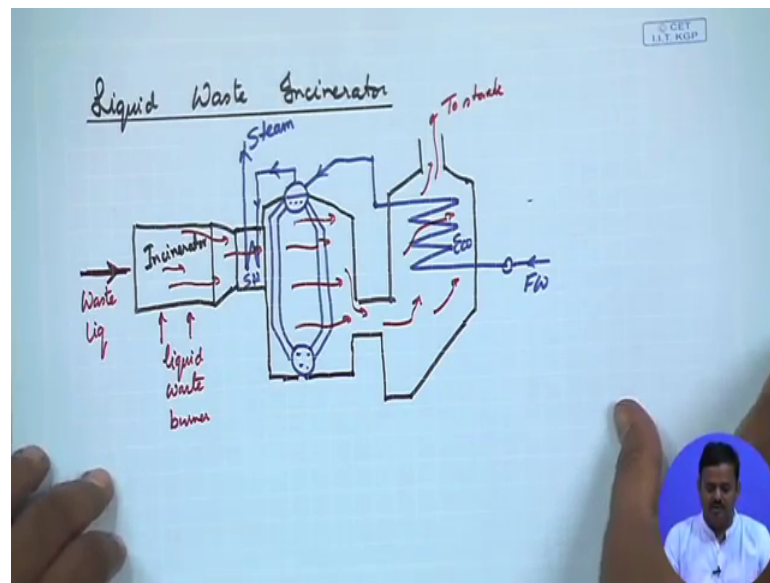 © CET
I.I.T. KGP
Liquid Waste Incinerator
To stack
Steam
Incinerator
SH
Eco
Waste
Liq
FW
liquid
waste
burner